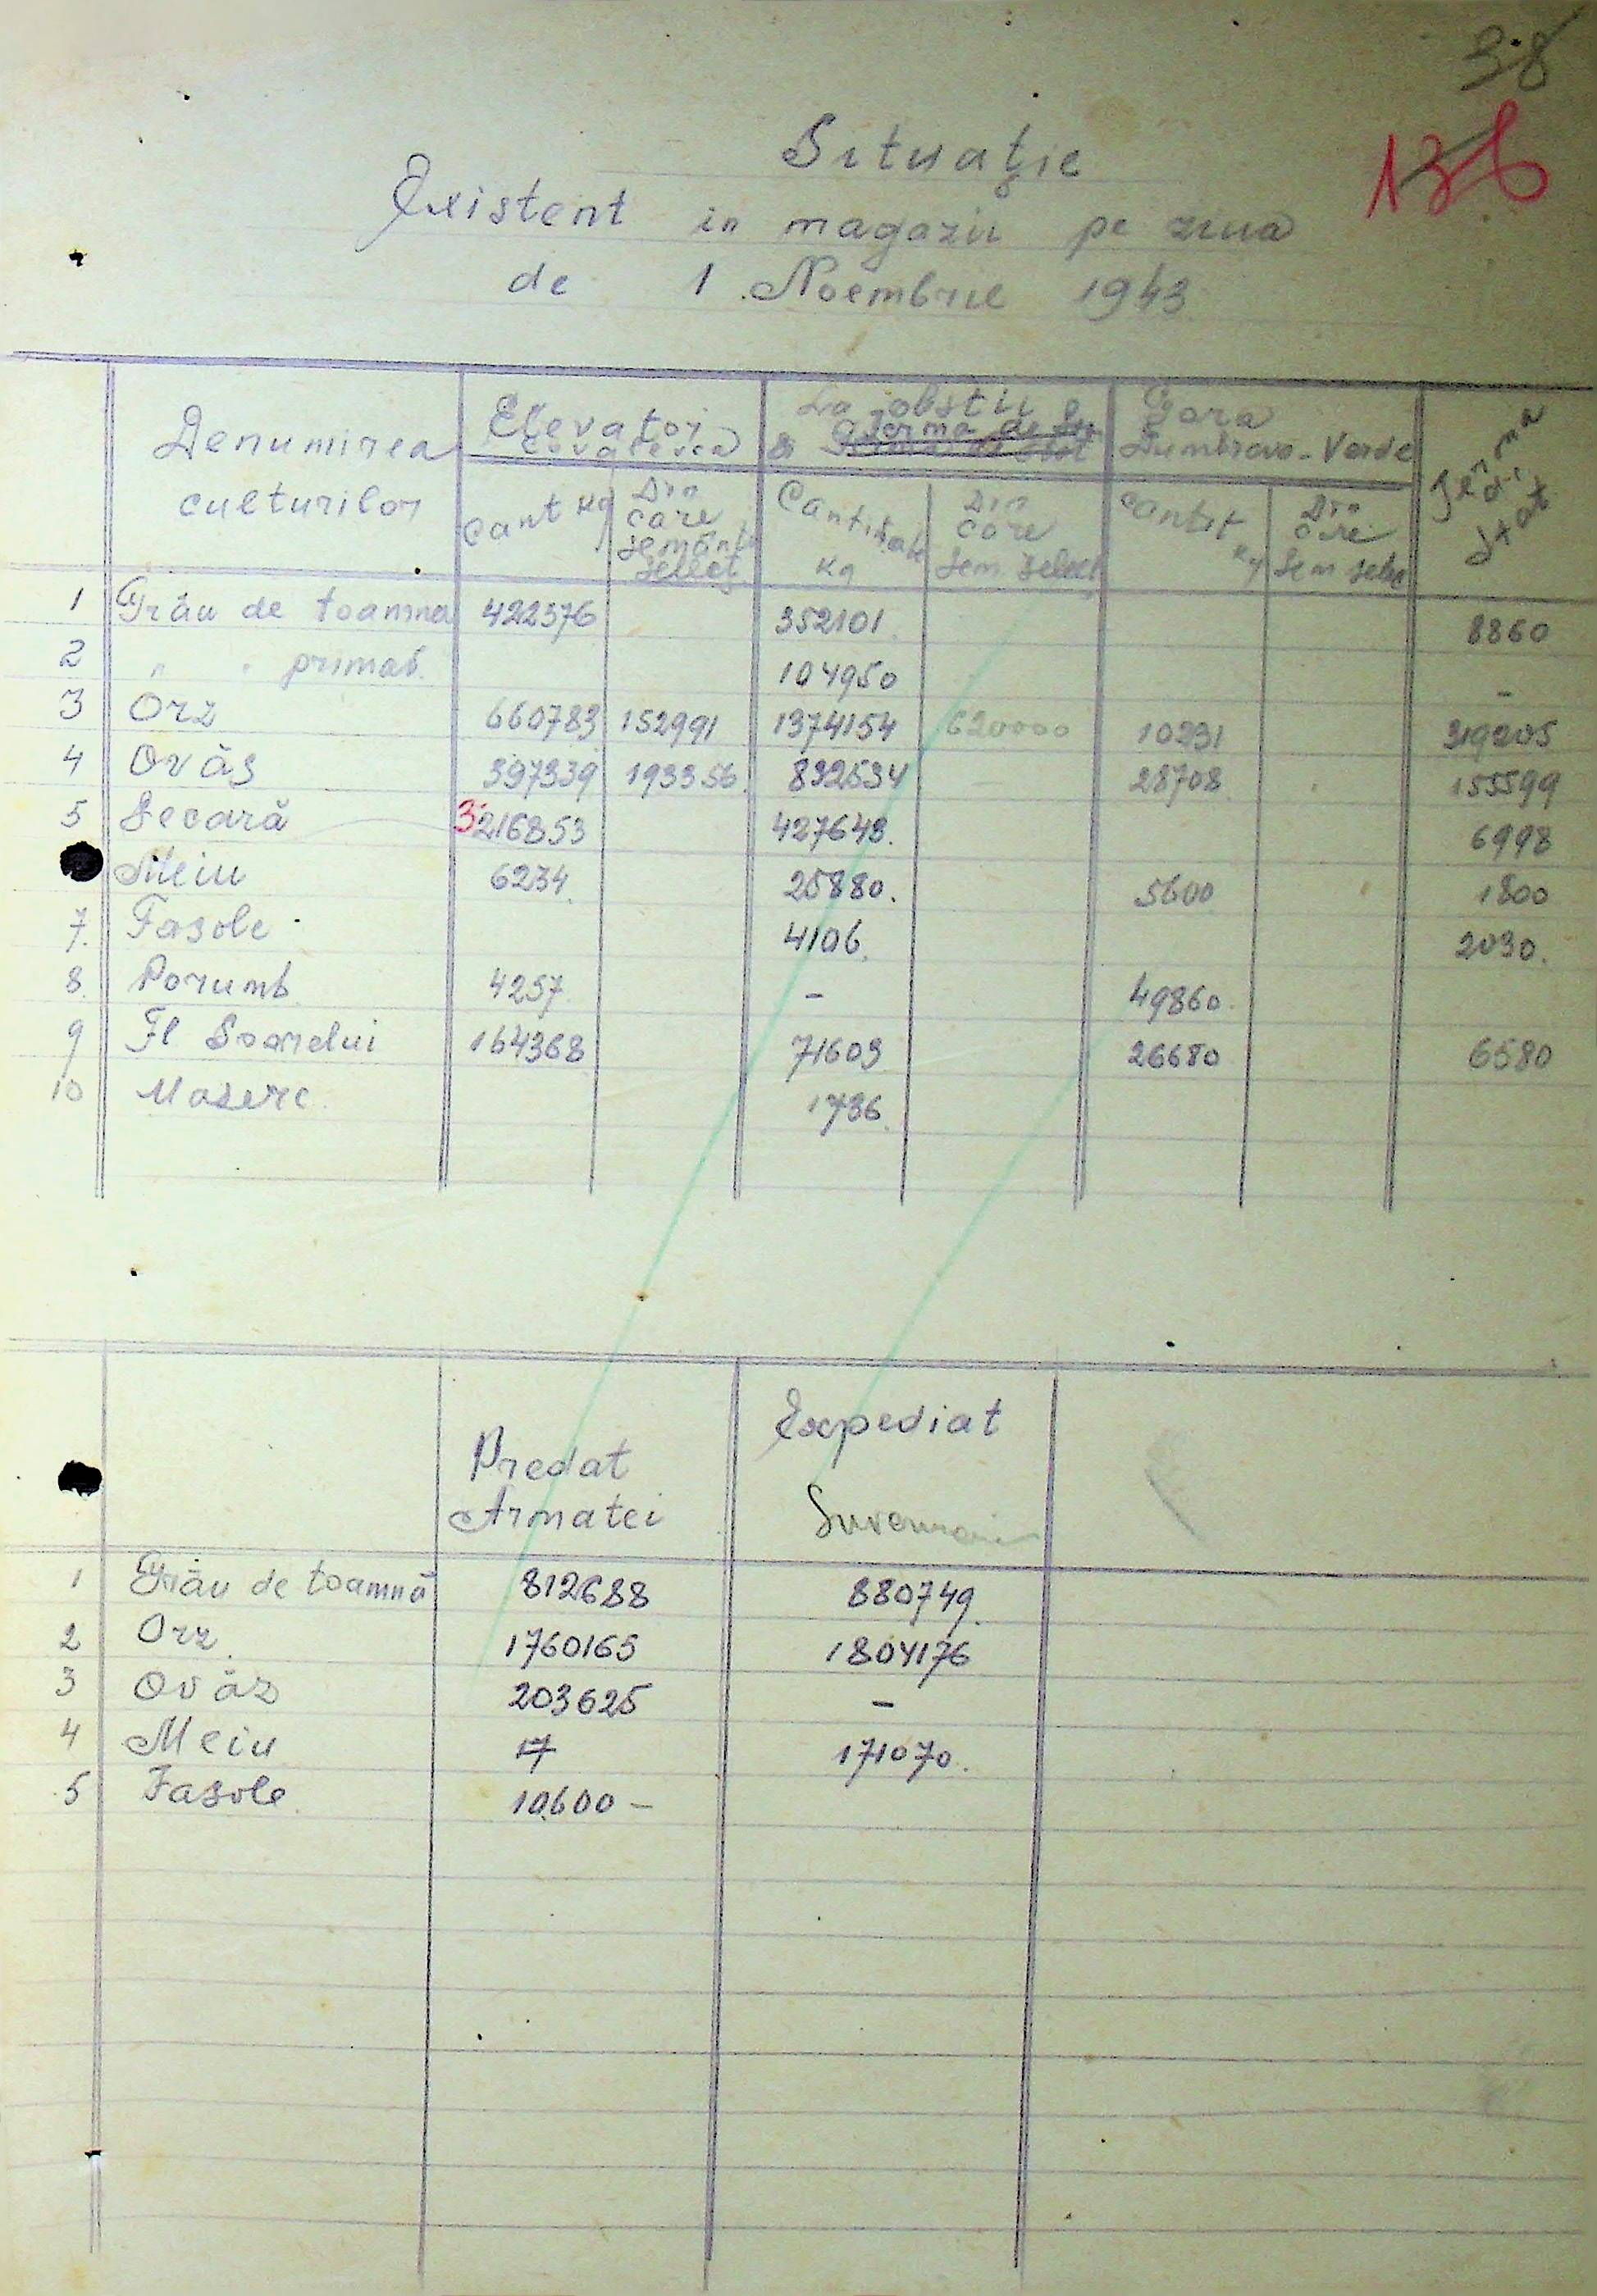 38
136
Situaţie
Existent in magazii pe ziua
de 1 Noembrie 1943
Denumirea culturilor
Elevator
La obstii
Gara Dumbrava-Verde
Ferma Stat
Cant Kg
Din care semânţe select
Cantitate Kg
Din care sem select
Cantit Kg
Din care sem selec
1 Grâu de toamna 422376 352101 8860
2 " " primav. 104950 -
3 Orz 660783 152991 1374154 620000 10231 319205
4 Ovăs 397339 193356 832534 28708 155599
5 Secară 216853 427643. 6998
Meiu 6234. 25880. 5600 1800
7. Fasole 4106. 2030.
8. Porumb 4257. - 49860.
9 Fl Soarelui 164368 71603 26680 6580
10 Mazere 1736.
Predat Armatei
Expediat
1 Grâu de toamnă 812688 880749.
2 Orz 1760165 1804176
3 Ovăz 203625 -
4 Meiu 17 171070.
5 Fasole 10600 -